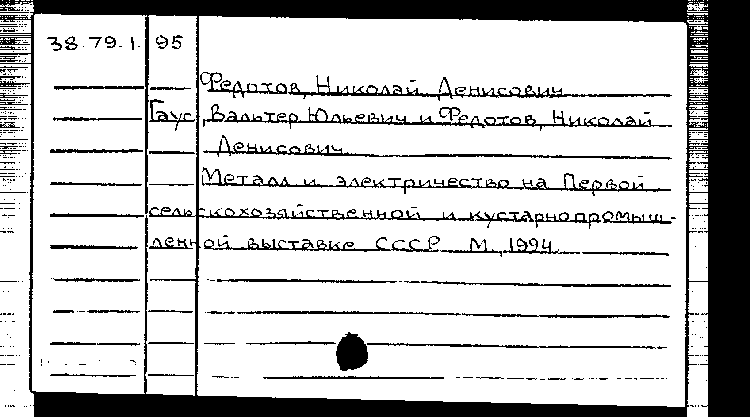 38.79.1. 95
Федотов, Николай Денисович
Гаус, Вальтер Юльевич и Федотов, Николай
Денисович.
Металл и электричество на Первой
сельскохозяйственной и кустарнопромыш-
ленной выставке СССР М., 1994